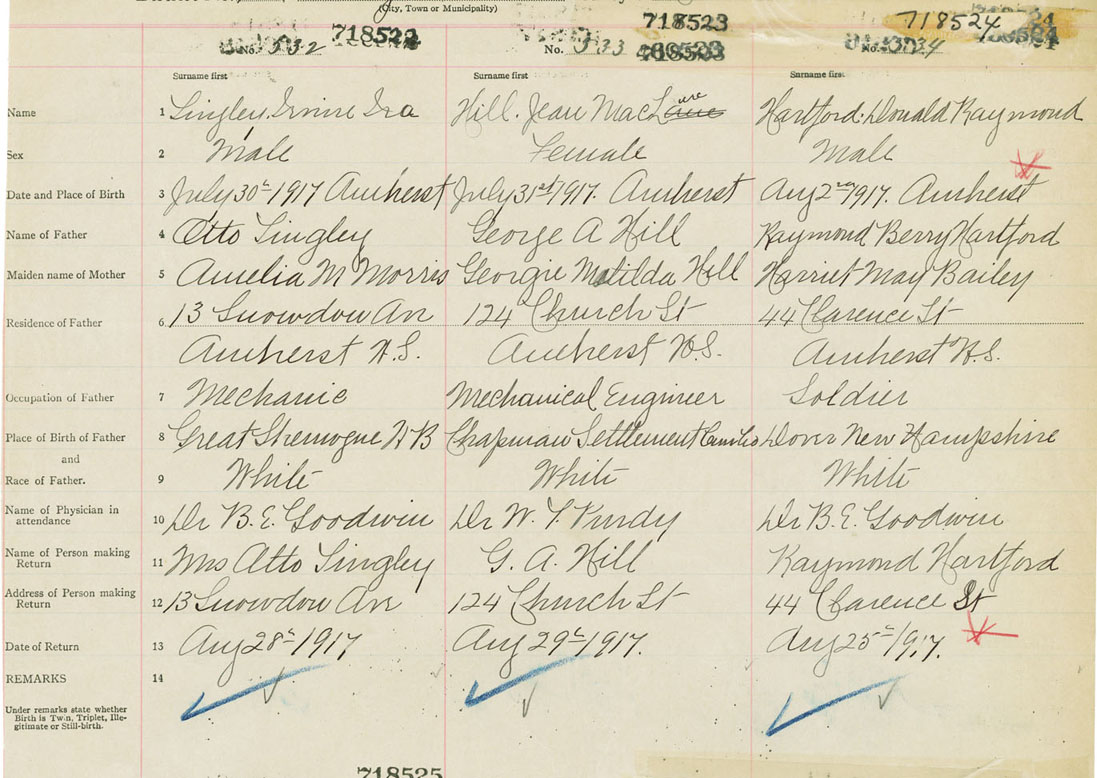 (City, Town or Municipality)
718522 718523 718524
No. 532 No. 533 No. 534
Surname first Surname first Surname first
Name 1 Lingley. Irvine Ira Hill. Jean MacLaure Hartford. Donald Raymond
Sex 2 Male Female Male
Date and Place of Birth 3 July 30th 1917 Amherst July 31st 1917. Amherst Aug 2nd 1917. Amherst
Name of Father 4 Otto Lingley George A Hill Raymond Berry Hartford
Maiden name of Mother 5 Amelia M Morris Georgie Matilda Hill Harriet May Bailey
Residence of Father 6 13 Snowdon Av 124 Church St 44 Clarence St
Amherst N.S. Amherst N.S. Amherst N.S.
Occupation of Father 7 Mechanic Mechanical Engineer Soldier
Place of Birth of Father 8 Great Shemogue N B Chapman Settlement Dover New Hampshire
and
Race of Father. 9 White White White
Name of Physician in
attendance 10 Dr B. E. Goodwin Dr W. T. Purdy Dr B. E. Goodwin
Name of Person making
Return 11 Mrs Otto Lingley G. A. Hill Raymond Hartford
Address of Person making
Return 12 13 Snowdon Av 124 Church St 44 Clarence St
Date of Return 13 Aug 28th 1917 Aug 29th 1917. Aug 25th 1917.
REMARKS 14
Under remarks state whether
Birth is Twin, Triplet, Ille-
gitimate or Still-birth.
718525